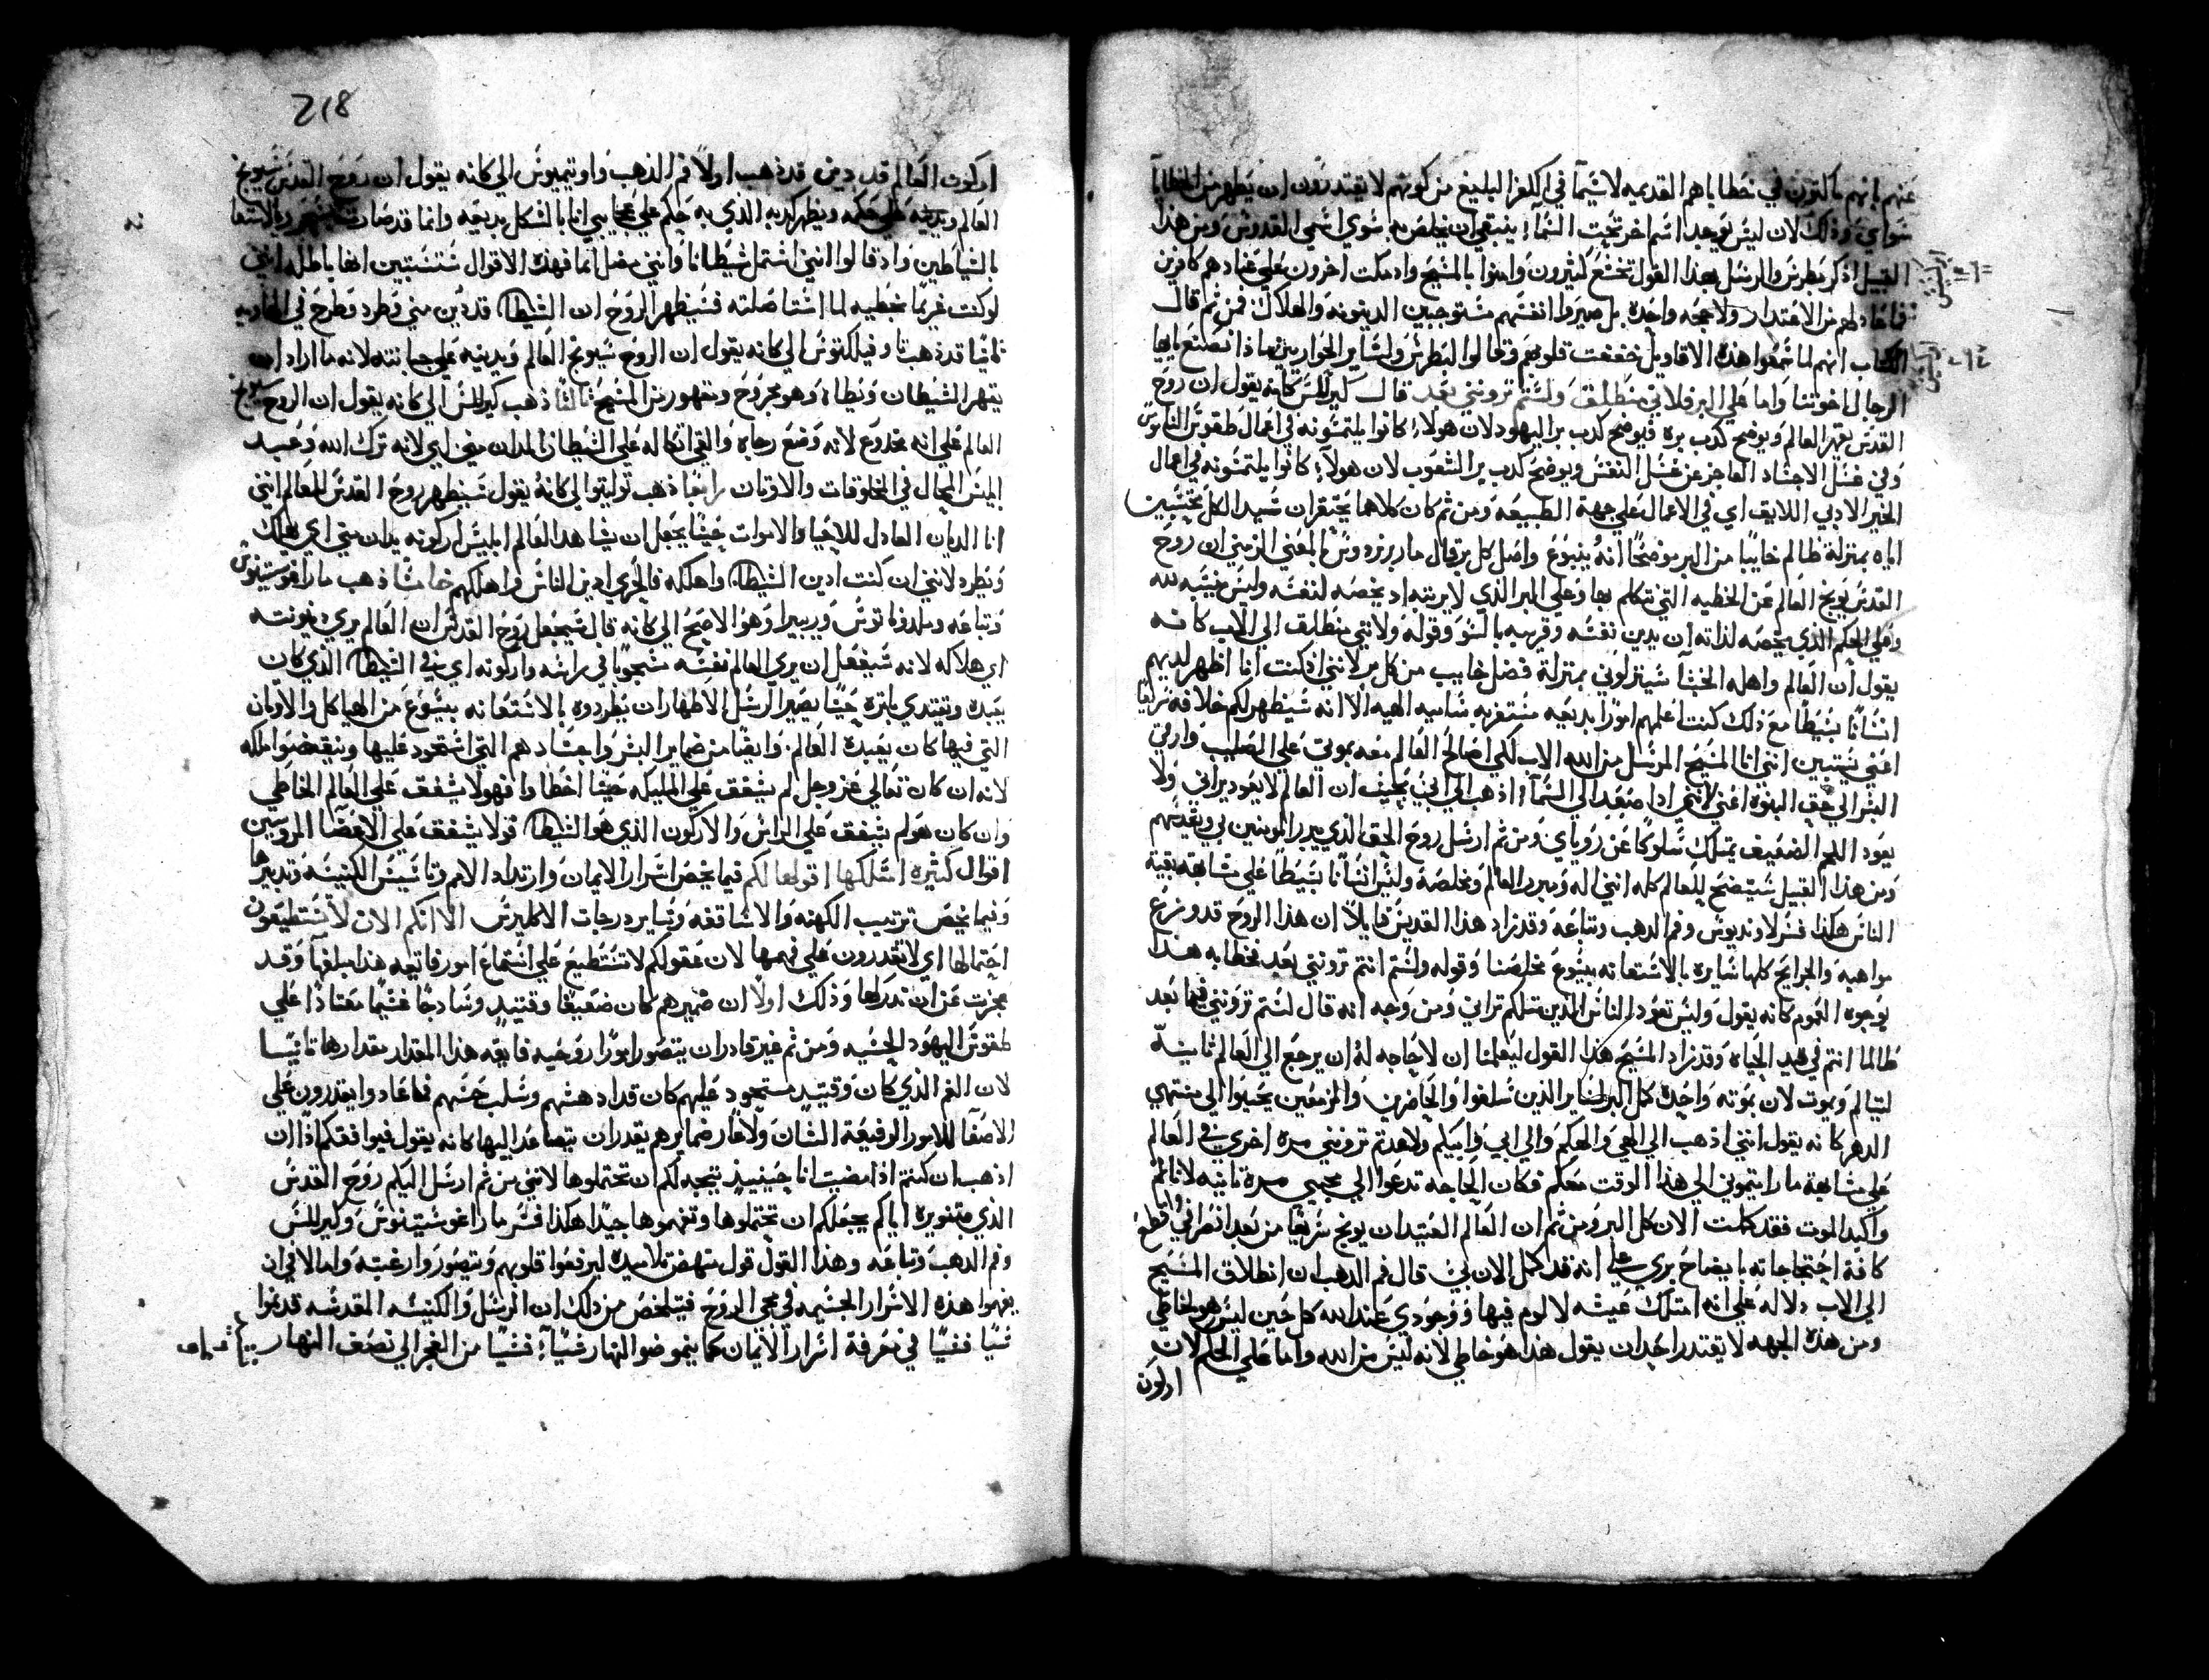 عنهم بانهم ماكثون في خطاياهم القديمه لاسيما في الكفر البليغ من كونهم لا يقتدرون ان يطهر من الخطايا
سواي وذلك لان ليس يوجد اسم اخر تحت السماء ينبغي ان نخلص به سوي اسمي القدوس ومن هذا
القبيل اذ كرز بطرس والرسل بهذا القول تخشع كثيرون وامنوا بالمسيح واد مكت اخرون علي عنادهم كافرين
فما عاد لهم من الاعتدار ولا حجه واحده بل صيروا انفسهم مستوجبين الدينونه والهلاك فمن ثم قال
الكتاب انهم لما سمعوا هذه الاقاويل خفقت قلوبهم وقالوا لبطرس ولساير الحواريين ماذا نصنع يايها
الرجال اخوتنا واما علي البر فلاني منطلق ولستم ترونني بعد قال كيرللس كانه يقول ان روح
القدس يقهر العالم ويوضح كدب بره فيوضح كدب بر اليهود لان هولاء كانوا يلتمسونه في اعمال طقوس الناموس
وفي غسل الاجساد العاجز عن غسل النفس ويوضح كدب بر الشعوب لان هولاء كانوا يلتمسونه في اعمال
الخير الادبي اللايق اي في الاعمال علي جهة الطبيعه ومن ثم كان كلاهما يحتقران سيد الكل محتسبين
اياه بمنزلة ظالم خاليا من البر موضحا انه ينبوع واصل كل بر قال مار برزدوس بالمعني الزمني ان روح
القدس يوبخ العالم عن الخطيه التي تكلم بها وعلي البر الذي لا يريته اد يخصه لنفسه وليس ينسبه لله
وعلي الحكم الذي يخصه لذاته ان يدين نفسه وقريبه بالسو وقوله ولانني منطلق الي الاب كانه
يقول ان العالم واهله الخبثا سينزلوني بمنزلة فضل خايب من كل بر لانني اذ كنت انا اظهر لديهم
انسانا بسيطا مع ذلك كنت اعلمهم امورا بديعه مستغربه ساميه الهيه الا انه سيظهر لكم خلافه سريعا
اعني يستبين انني انا المسيح المرسل من الله الاب لكي اصالح العالم معه بموتي علي الصليب وارقي
البشر الي حق البنوه اعني لانني اذا صعد الي السماء اذهب الي ابي بحيث ان العالم لا يعود يراني ولا
يعود اللحم الضعيف يمتلك سلوكا عن روياي ومن ثم ارسل روح الحق الذي يبرر المومنين بي ويقدسهم
ومن هذا القبيل سيتضح للعالم كله انني اله ومبرر العالم ومخلصه وليس انسانا بسيطا علي مشابهة بقية
الناس هكذا فسر لاونديوس وفم الدهب وتباعه وقد زاد هذا القديس قايلا ان هذا الروح قد وزع
مواهبه والجرايح كلها سايره بالاستعانه بيسوع مخلصنا وقوله ولستم انتم ترونني بعد فخطابه هدا
بوجوه العموم كانه يقول وليس تعود الناس الذين مثلكم تراني ومن وجه انه قال لستم ترونني فيما بعد
طالما انتم في هده الحياه وقد زاد المسيح هذا القول ليعلمنا ان لا حاجه له ان يرجع الي العالم ثانيةً
ليتالم ويموت لان بموته واحده كمل البر لساير الذين سلفوا والحاضرين والمزمعين يحيوا الي منتهي
الدهر كانه يقول انني اذهب الي الهي والهكم والي ابي وابيكم ولا عدتم ترونني مره اخري في العالم
علي مشابهة ما رايتموني الي هذا الوقت معكم فكان الحاجه تدعوا الي مجيي مره ثانيه لاتالم
واكبد الموت فقد كملت الان كل البر ومن ثم ان العالم العتيد ان يوبخ سريعا من بعد انصرافي وانا اقطع
كافة احتجاجاته بايضاح بري علي انه قد كمل الان في قال فم الدهب ان انطلاق المسيح
الي الاب دلاله علي انه امتلك عيشه لا لوم فيها ووجودي عند الله كل حين ليس هو لخاطي
ومن هذه الجهه لا يقتدر احد ان يقول هذا هو خاطي لانه ليس من الله واما علي الحكم لان
اركون
218
اركون العالم قد دين قد ذهب اولاً فم الذهب واوتيميوس الي كانه يقول ان روح القدس سيوبخ
العالم ويدينه علي حكمه ويظهر كدبه الذي به حكم علي عجايبي انا بالشكل بديعه وانما قد صارت
بالشياطين واد قالوا انني اشتمل شيطانا وانني مضل انما فهذه الاقوال ستستبين انها باطله انني
لو كنت غريما بخطيه لما استاصلته فسيظهر الروح ان الشيطان قد دين مني وطرد وطرح في الهاويه
ثانيا قد ذهب تاوفيلكتوس الي كانه يقول ان الروح سيوبخ العالم ويدينه علي جبانته لانه ما اراد ان
يقهر الشيطان ويطاه وهو مجروح ومقهور من المسيح ثالثا ذهب كيرللس الي كانه يقول ان الروح سيوبخ
العالم علي انه مخدوع لانه وضع رجاه والقي اتكاله علي الشيطان المدان مني اي لانه ترك الله وعبد
ابليس المحال في المخلوقات والاوتان رابعا ذهب توليتوا الي كانه يقول سيظهر روح القدس للعالم انني
انا الديان العادل للاحيا والاموات حيثما يجعل ان يشاهد العالم ابليس اركونه يدان مني اي يهلك
ويطرد لانني ان كنت ادين الشيطان واهلكه فبالحري ادين الناس واهلكهم خامسا ذهب مار اغوستينوس
وتباعه وملدوناتوس وريبيرا وهو الاصح الي كانه قال سيجعل روح القدس ان العالم يري دينونته
اي هلاكه لانه سيفعل ان يري العالم نفسه مشجوبا في راسه واركونه اي في الشيطان الذي كان
يعبده ويقتدي باثره حيثما يصير الرسل الاطهار ان يطردوه بالاستعانه بيسوع من الهياكل والاوتان
التي فيها كان يعبده العالم، وايضا من ضماير البشر واجساد هم التي استحود عليها وينقضوا ملكه
لانه ان كان تعالي عز وجل لم يشفق علي الملايكه حيثما اخطاوا فهو لا يشفق علي العالم الخاطي
وان كان هو لم يشفق علي الراس والاركون الذي هو الشيطان فولا يشفق علي الاعضا المروسين
اقوال كثيره امتلكها اقولها لكم فيما يخص اسرار الايمان وارتداد الامم وتاسيس الكنيسه وتدبيرها
وفيما يخص ترتيب الكهنه والاساقفه وساير درجات الاكليرس الا انكم الان لا تستطيعون
احتمالها اي لا تقدرون علي فهمها لان عقولكم لا تستطيع علي استماع امور فايقه هذا مبلغها وقد
عجزت عن ان تدركها وذلك اولاً ان ضميرهم كان ضعيفا وقتيد وسادجا غشيما معتادا علي
طقوس اليهود الحسيه ومن ثم غير قادر ان يتصور امورا روحيه فايقه هذا المقدار مقدارها ثانيا
لان الغم الذي كان وقتيد مستحود عليهم كان قد ادهشهم وسلب حسهم فما عادوا يقدرون علي
الاصغا للامور الرفيعة الشان ولا عاد ضمايرهم يقدر ان يتصاعد اليها كانه يقول فيوافقكم اذا ان
اذهب ان كنتم اذا مضيت انا حينيد يتجه لكم ان تحتملوها لانني من ثم ارسل اليكم روح القدس
الذي بتنويره اياكم يجعلكم ان تحتملوها وتفهموها جيدا هكذا فسر مار اغوستينوس وكيرللس
وفم الدهب وتباعه وهذا القول قول منهض تلاميده ليرفعوا قلوبهم ويتصوروا رغبة وامالا في ان
يفهموا هذه الاسرار الجسيمه في مجي الروح فيتلخص من ذلك ان الرسل والكنيسه المقدسه قد نموا
شيا فشيا في معرفة اسرار الايمان كما ينمو ضو النهار شيا فشيا من الفجر الي نصف النهار